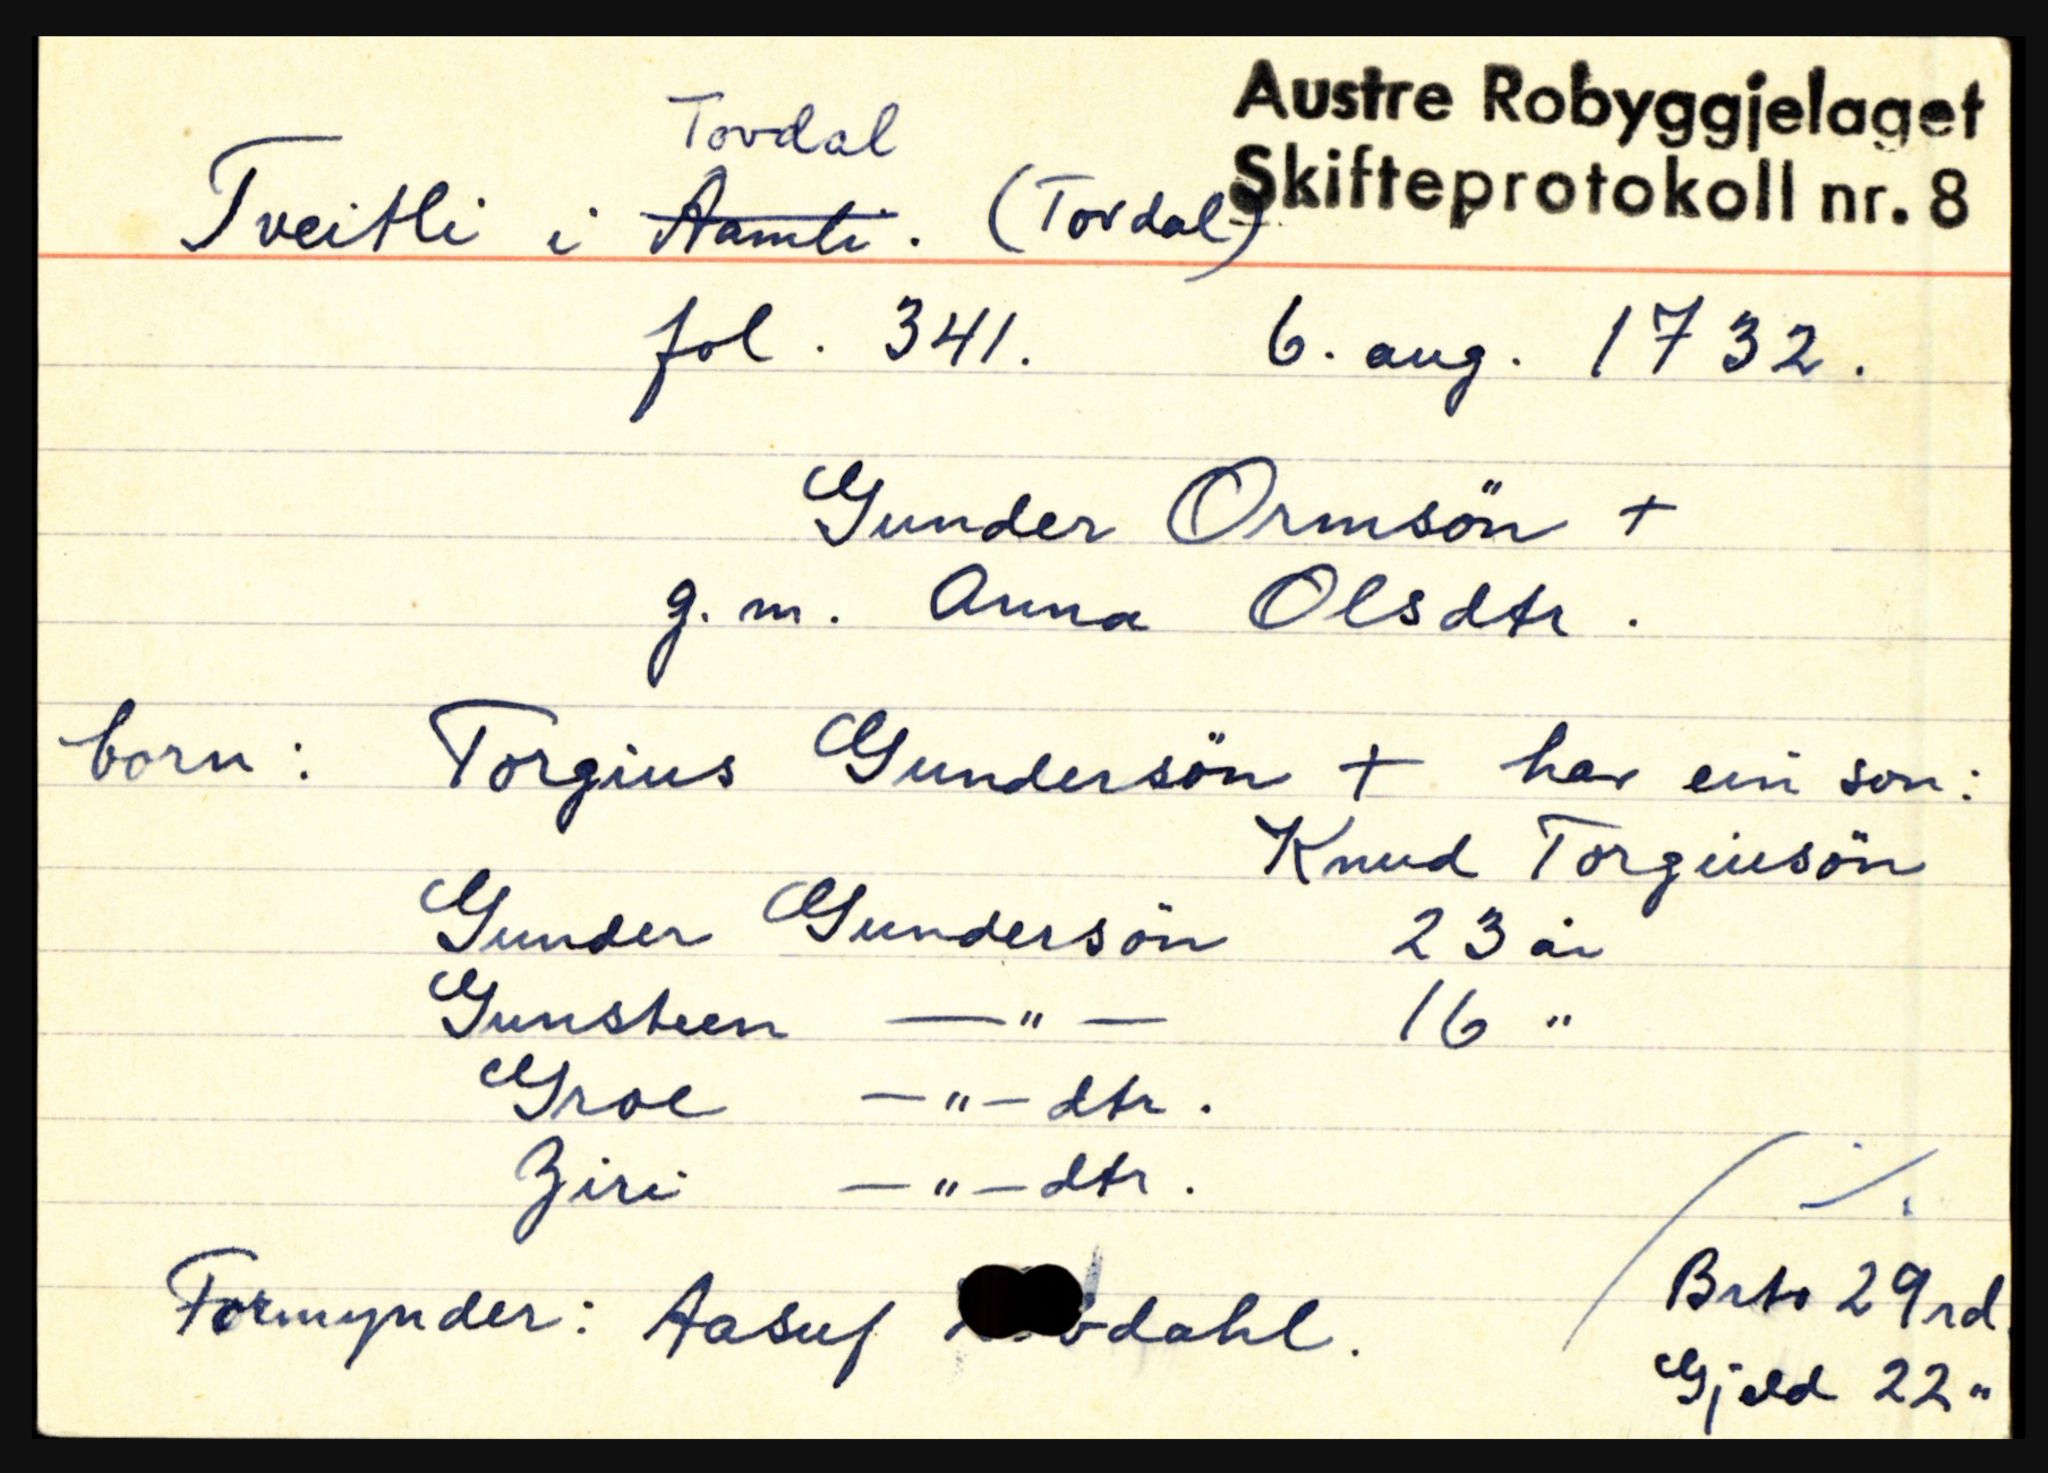 Austre Robyggjelaget
Skifteprotokoll nr. 8
Tovdal
Tveitli i Aamli. (Tovdal)
fol. 341. 6. aug. 1732.
Gunder Ormsön +
g. m. Anna Olsdtr.
born: Torgius Gundersön + har ein son:
Knud Torgiusön
Gunder Gundersön 23 år
Gunsteen —"— 16 "
Groe —"—dtr.
Ziri —"—dtr.
Formynder: Aasuf
Brto 29 rd.
Gjeld 22 "